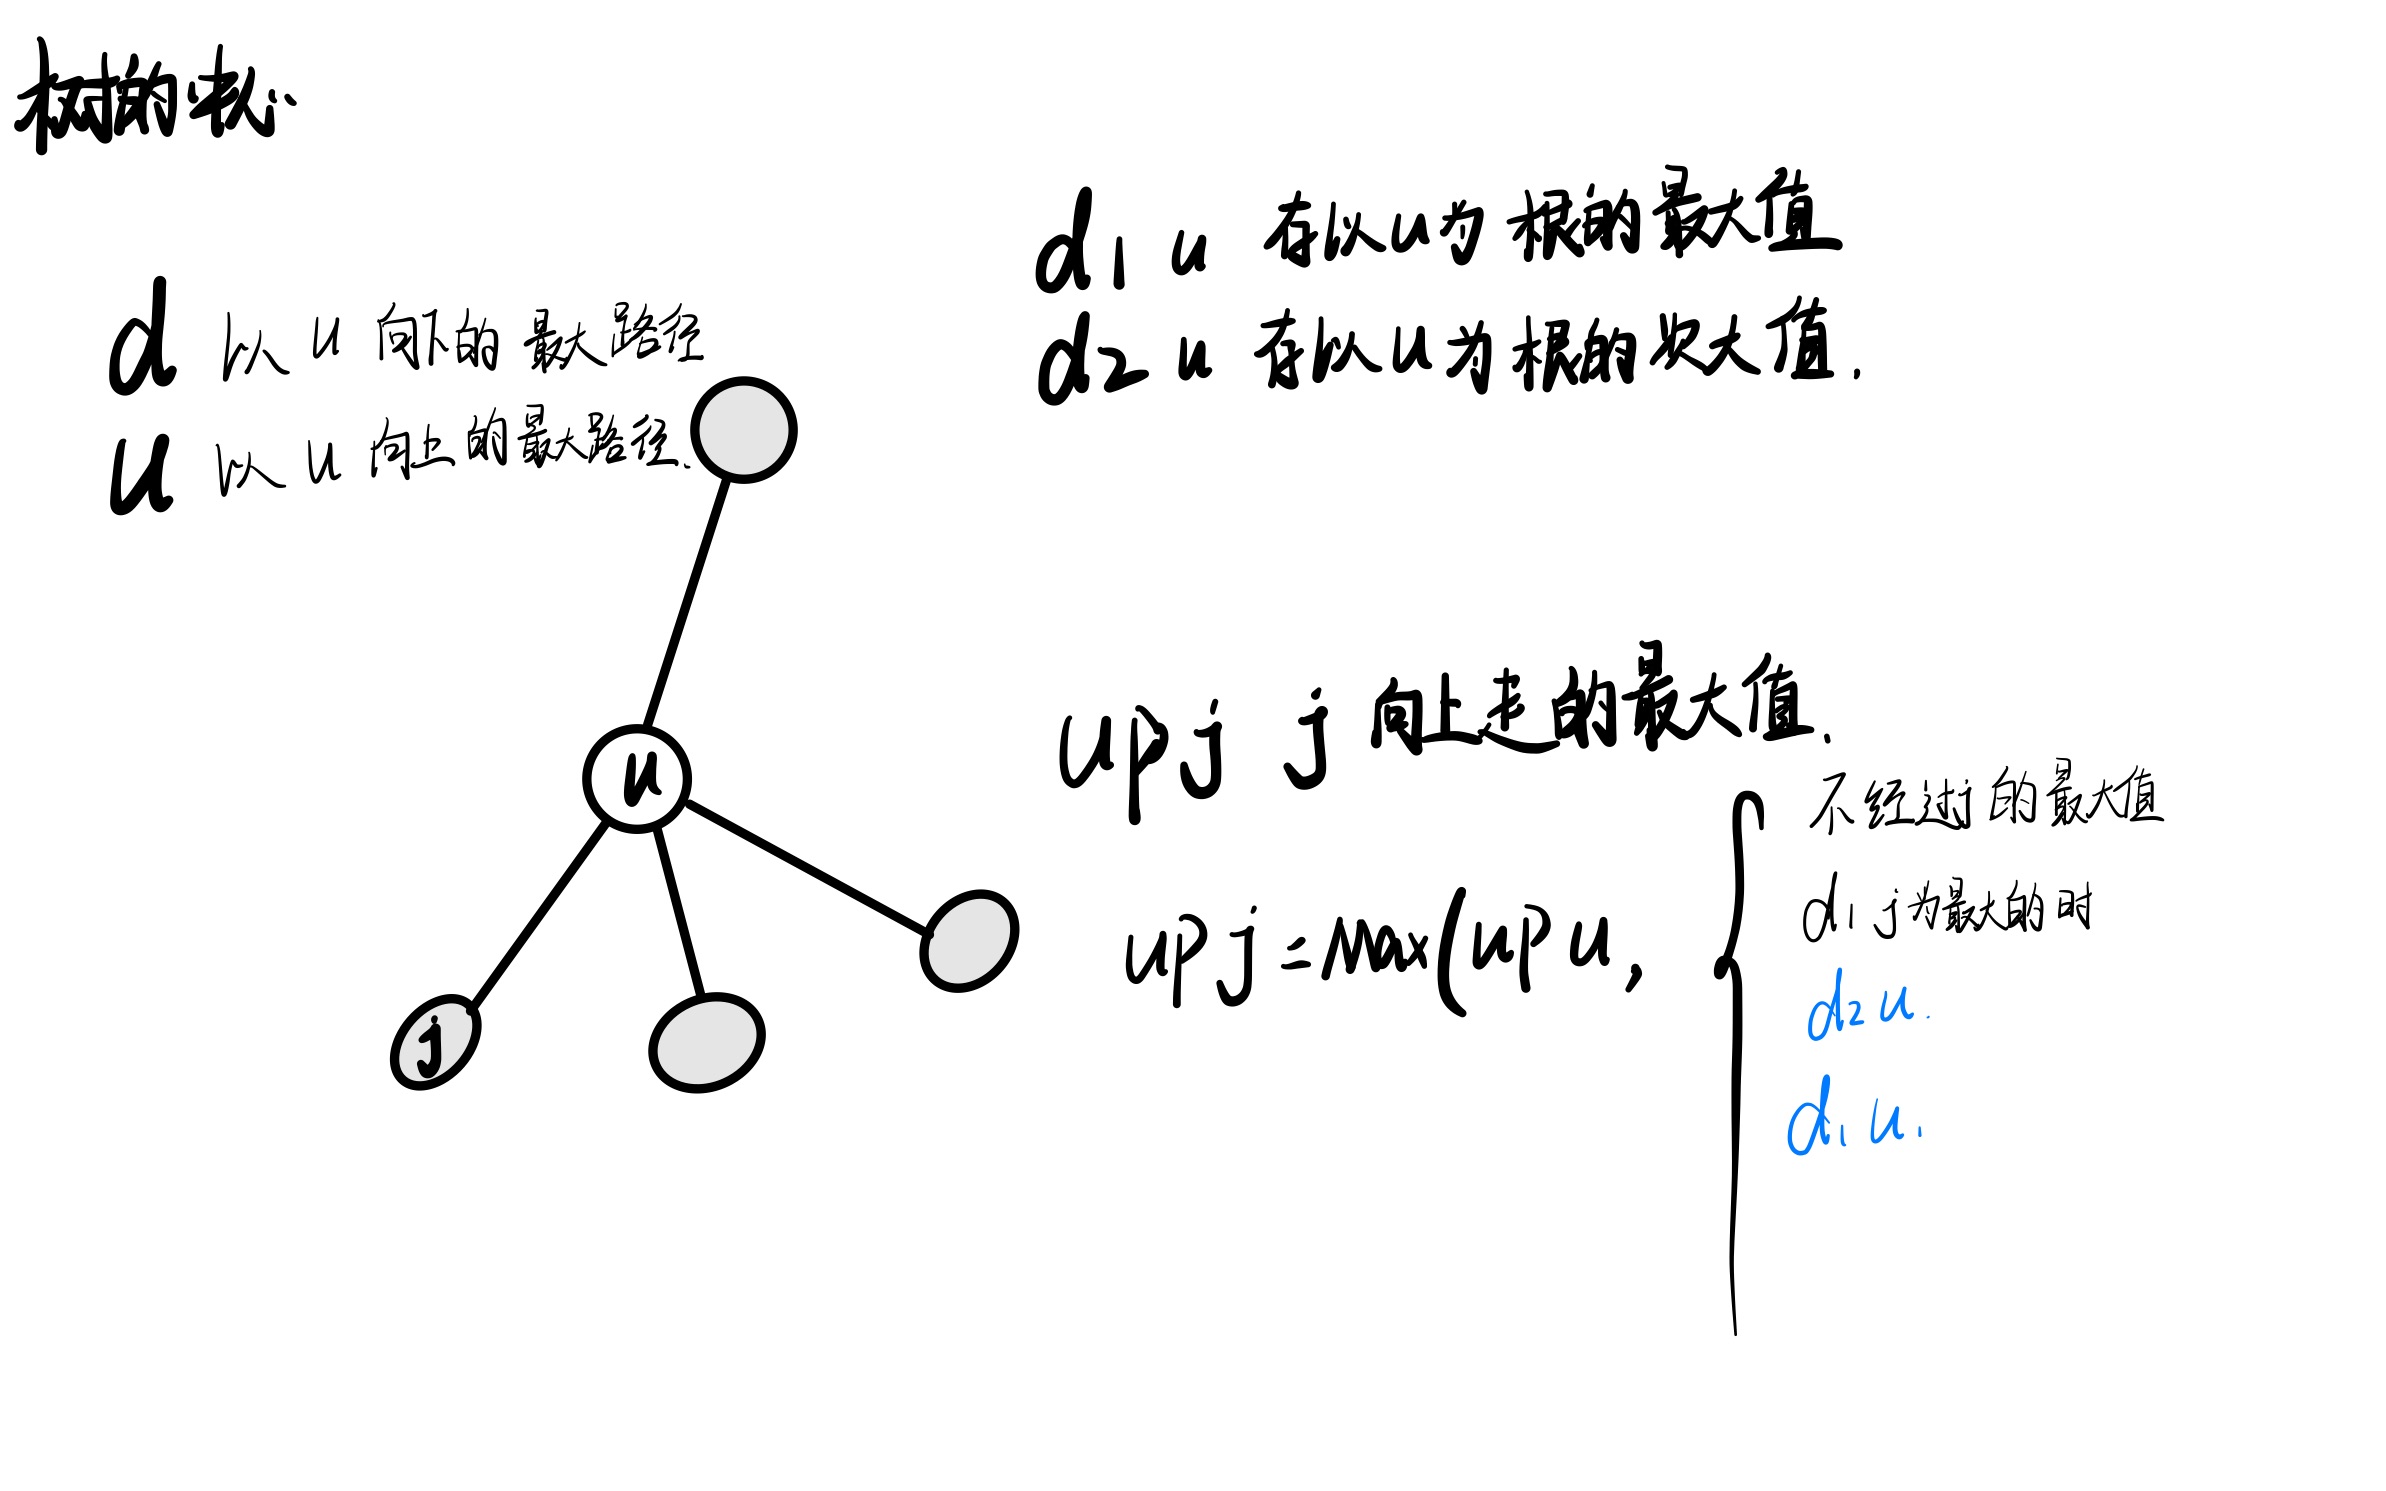 树的中心.
d 以 u 向下的最大路径
u 以 u 向上的最大路径.
d1 u 在以 u 为根的最大值
d2 u 在以 u 为根的次大值.
u
j
up j j 向上走的最大值.
up j = Max( up u ,
不经过j的的最大值
d1 j 为最大的时
d2 u.
d1 u.